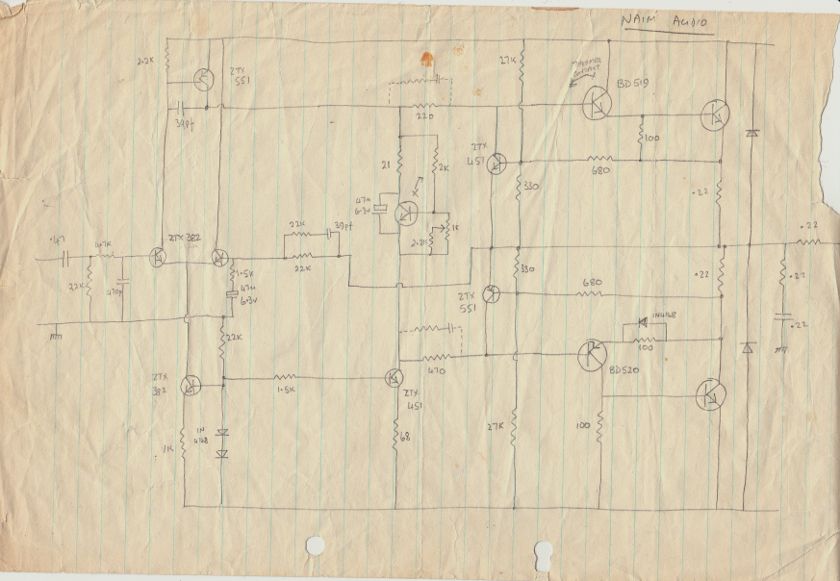 NAIM AUDIO
2.2K
ZTX
551
39pf
27K
BD 519
220
100
ZTX
451
680
21
2K
47u
6.3v
330
.22
1K
2.2K
.47
4.7K
ZTX 382
22K
39pf
22K
22K
470p
1.5K
47u
6.3v
330
.22
.22
ZTX
551
680
.22
22K
470
1N4148
100
BD520
ZTX
382
1.5K
ZTX
451
1K
1N
4148
68
27K
100